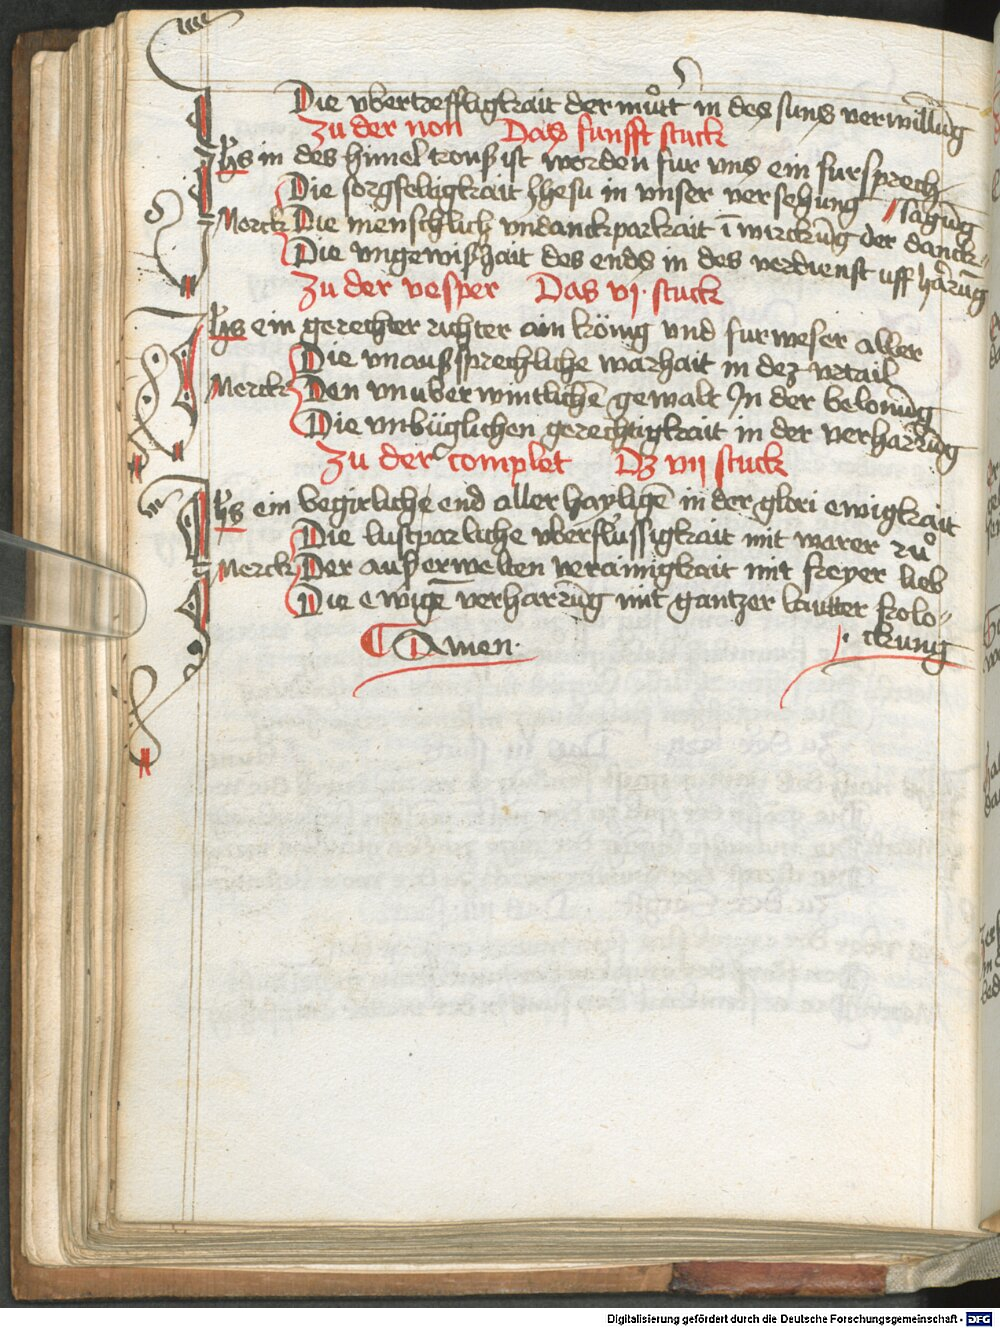 Die vbertreffligkait der můtt in des suns verwillūg
Zu der non Das funfft stuck
Jhs in des himel trouß ist worden fur vns ein fursprech
Die sorgfeltigkait Jhesu in vnser versehung // lagūg
Merck Die menschlich vndanckparkait ī wirckūg der danck-
Die vngewißhait des ends in des verdienst uff hȧrūg
Zu der vesper Das vj. stuck
Jhs ein gerechter richter ain könig vnd furweser aller
Die vnaußsprechliche warhait in dez vrtail
Merck Den vnuberwintlichē gewalt Jn der belonūg
Die vnbüglichen gerechtigkait in der verharrūg
Zu der complet Dz vij stuck
Jhs ein begirliche end aller hayligē in der glori ewigkait
Die lustparliche vberflussigkait mit warer růͦ
Merck Der außerwelten verainigkait mit freyer lieb
Die ewigē verharrūg mit gantzer lautter frolo-
Amen. . ckung
Digitalisierung gefördert durch die Deutsche Forschungsgemeinschaft - DFG